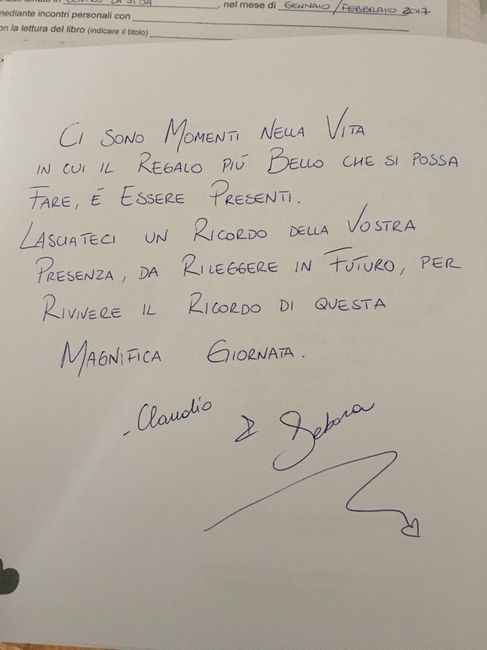 , nel mese di GENNAIO/FEBBRAIO 2017
mediante incontri personali con
on la lettura del libro (indicare il titolo)
CI SONO MOMENTI NELLA VITA
IN CUI IL REGALO PIÚ BELLO CHE SI POSSA
FARE, É ESSERE PRESENTI.
LASCIATECI UN RICORDO DELLA VOSTRA
PRESENZA, DA RILEGGERE IN FUTURO, PER
RIVIVERE IL RICORDO DI QUESTA
MAGNIFICA GIORNATA.
- Claudio & Debora